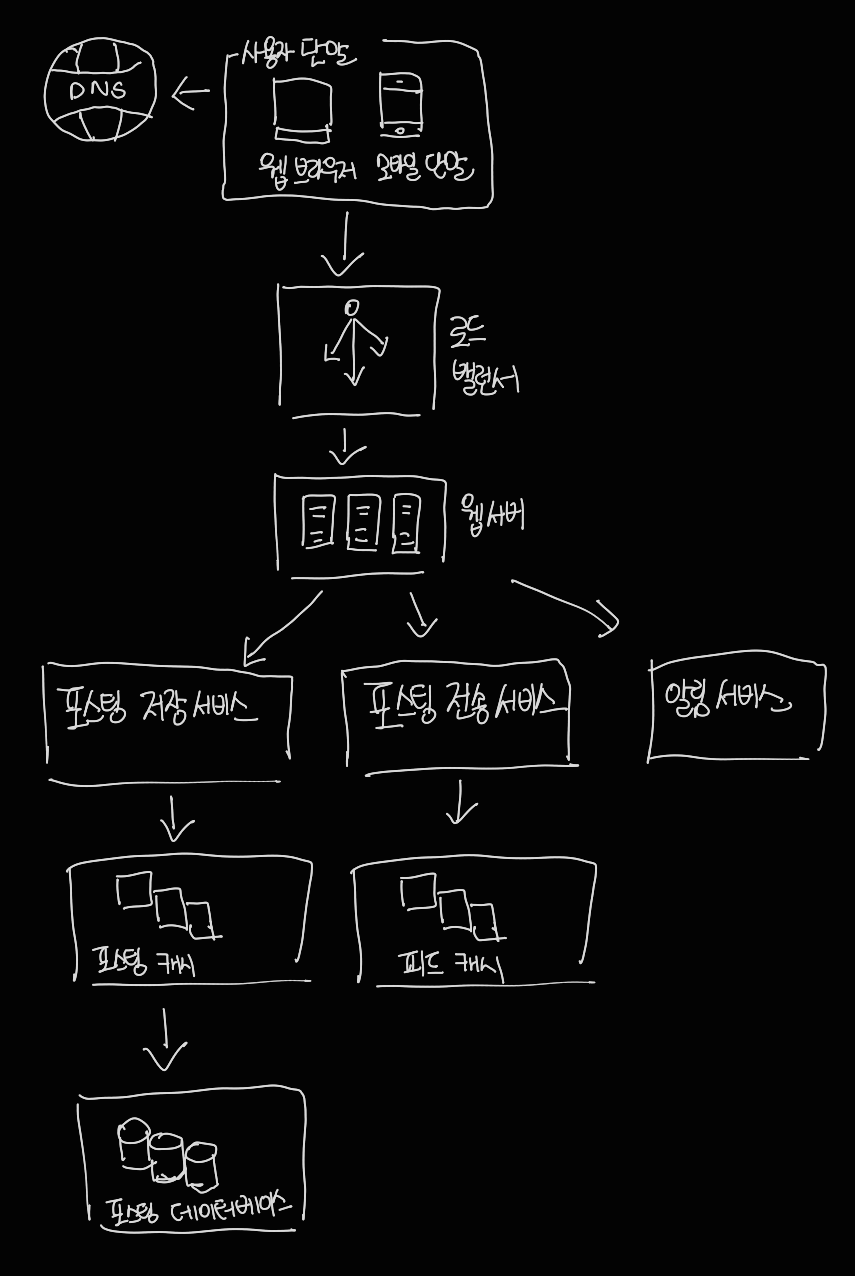 사용자 단말
DNS
웹 브라우저
모바일 단말
로드
밸런서
웹 서버
포스팅 저장 서비스
포스팅 전송 서비스
알림 서비스
포스팅 캐시
피드 캐시
포스팅 데이터베이스